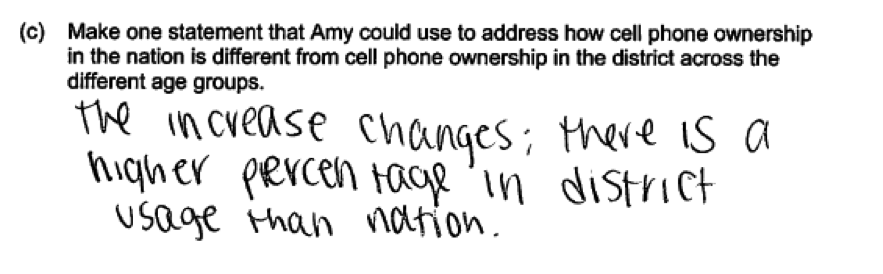 (c) Make one statement that Amy could use to address how cell phone ownership
in the nation is different from cell phone ownership in the district across the
different age groups.
the increase changes; there is a
higher percentage in district
usage than nation.